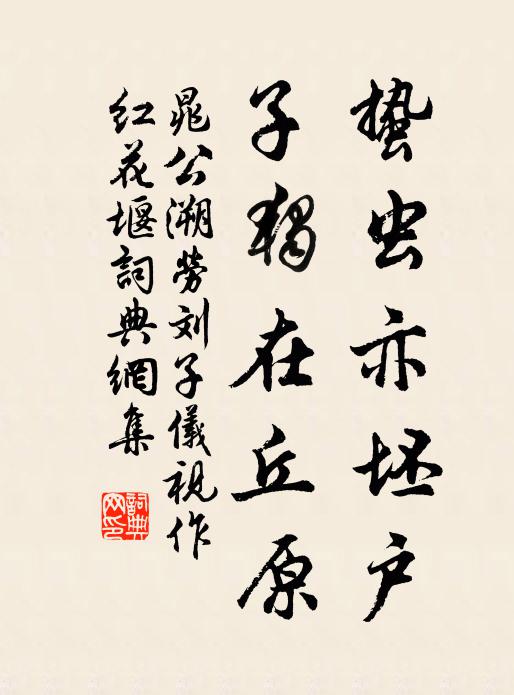 蛰虫亦坯户
子独在丘原
晁公溯劳刘子仪视作
红花堰詞典網集
詞典网印